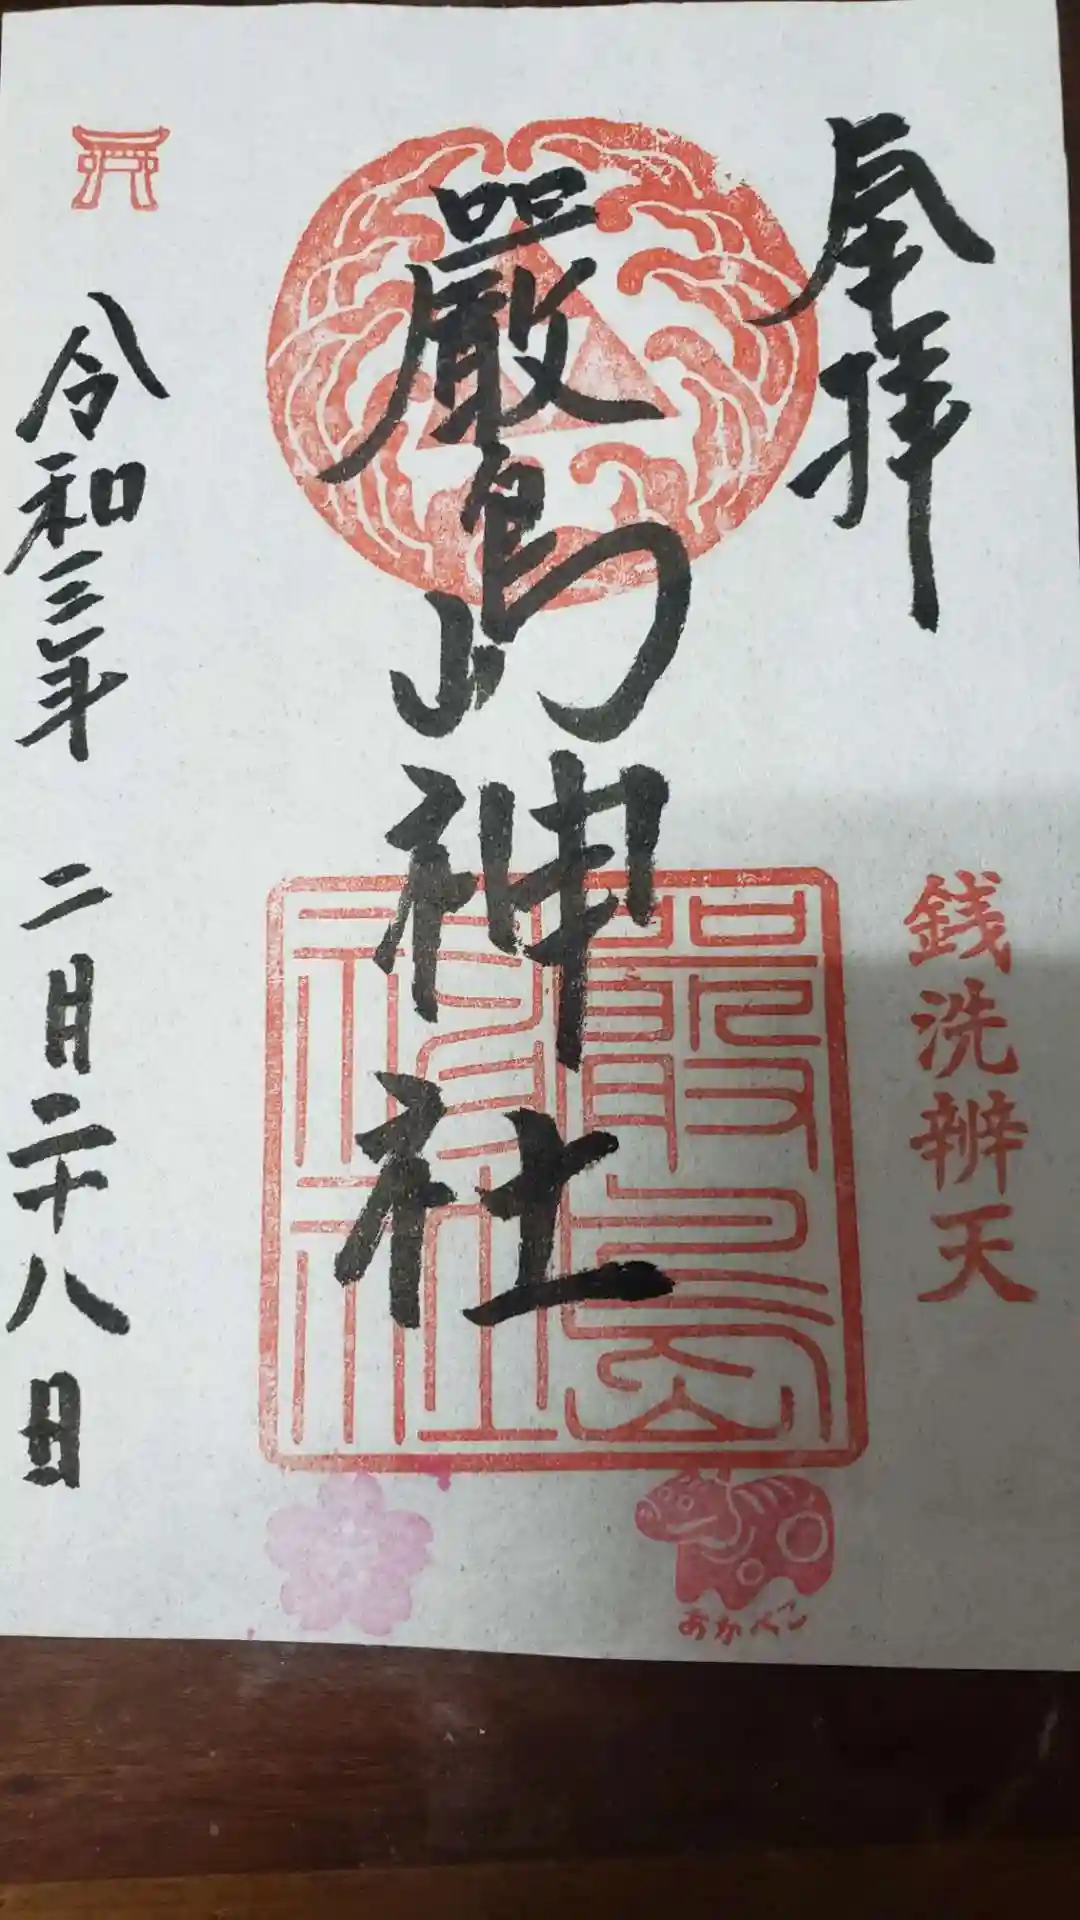 奉拝
銭洗辨天
嚴島神社
嚴島神社
あかべこ
令和三年 二月二十八日